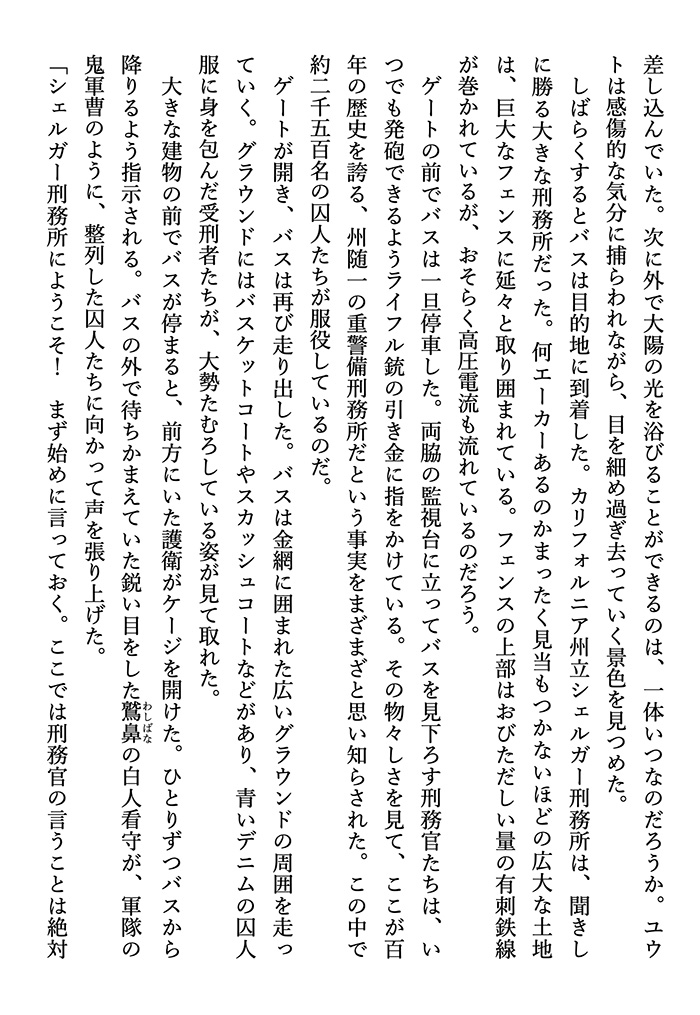 差し込んでいた。次に外で大陽の光を浴びることができるのは、一体いつなのだろうか。ユウ
トは感傷的な気分に捕らわれながら、目を細め過ぎ去っていく景色を見つめた。
しばらくするとバスは目的地に到着した。カリフォルニア州立シェルガー刑務所は、聞きし
に勝る大きな刑務所だった。何エーカーあるのかまったく見当もつかないほどの広大な土地
は、巨大なフェンスに延々と取り囲まれている。フェンスの上部はおびただしい量の有刺鉄線
が巻かれているが、おそらく高圧電流も流れているのだろう。
ゲートの前でバスは一旦停車した。両脇の監視台に立ってバスを見下ろす刑務官たちは、い
つでも発砲できるようライフル銃の引き金に指をかけている。その物々しさを見て、ここが百
年の歴史を誇る、州随一の重警備刑務所だという事実をまざまざと思い知らされた。この中で
約二千五百名の囚人たちが服役しているのだ。
ゲートが開き、バスは再び走り出した。バスは金網に囲まれた広いグラウンドの周囲を走っ
ていく。グラウンドにはバスケットコートやスカッシュコートなどがあり、青いデニムの囚人
服に身を包んだ受刑者たちが、大勢たむろしている姿が見て取れた。
大きな建物の前でバスが停まると、前方にいた護衛がケージを開けた。ひとりずつバスから
降りるよう指示される。バスの外で待ちかまえていた鋭い目をした鷲鼻の白人看守が、軍隊の
わしばな
鬼軍曹のように、整列した囚人たちに向かって声を張り上げた。
「シェルガー刑務所にようこそ！　まず始めに言っておく。ここでは刑務官の言うことは絶対